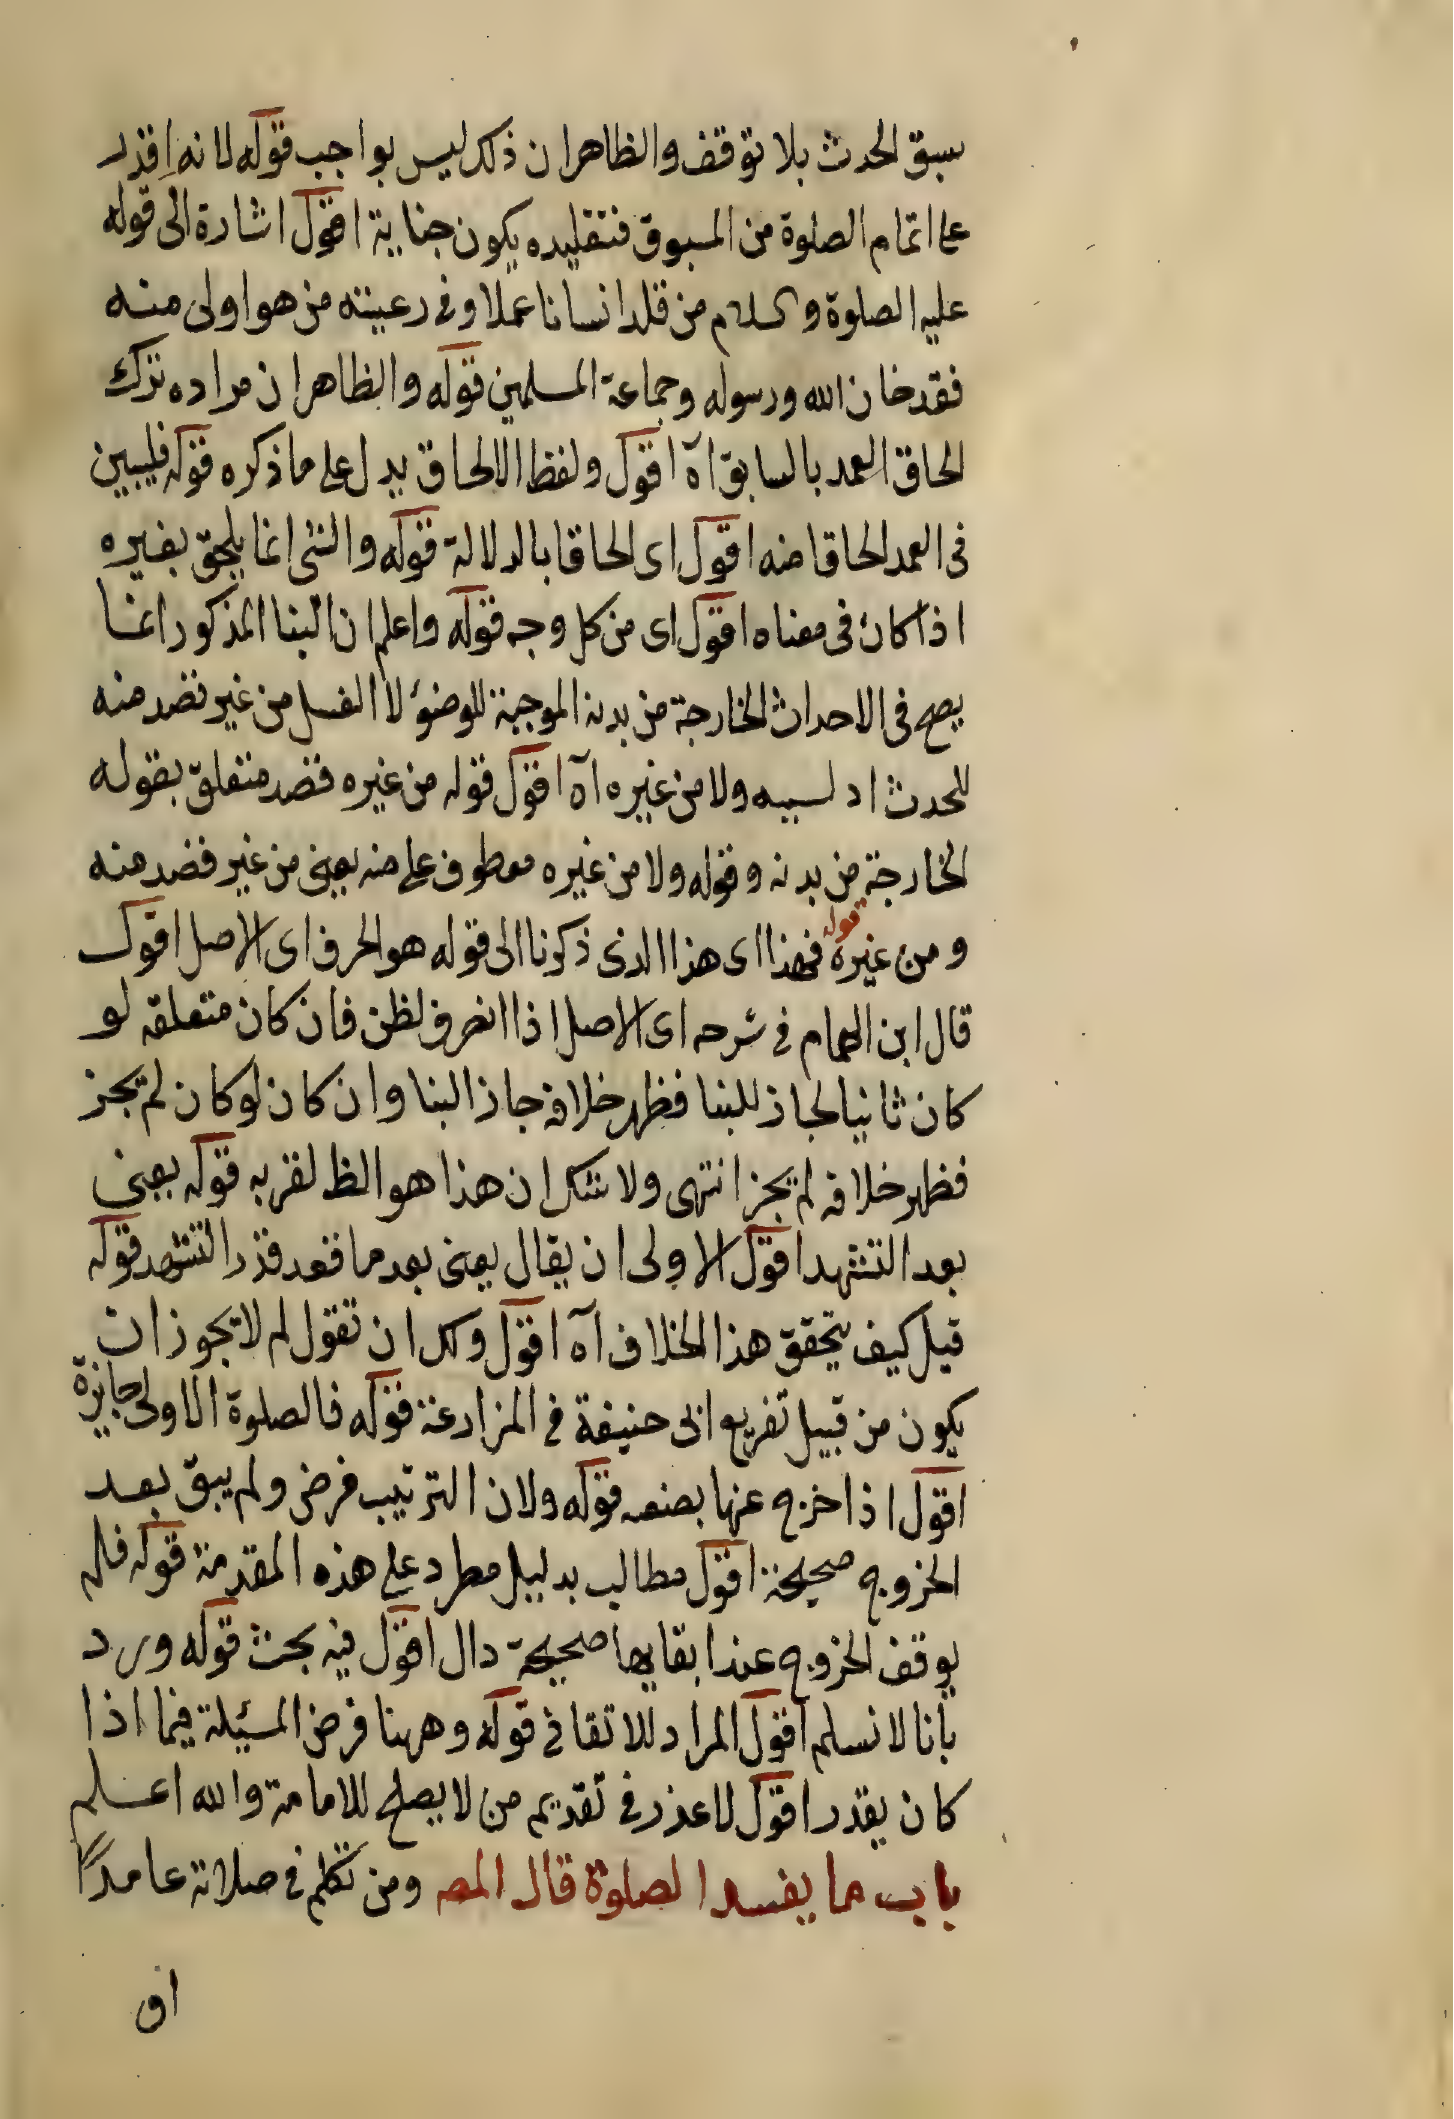 سبق الحدث بلا توقف والظاهر ان ذلك ليس بواجب قوله لانه اقدر
على اتمام الصلوة من المسبوق فتقليده يكون جناية اقول اشارة الى قوله
عليه الصلوة والسلام من قلد انسانا عملا وفي رعيته من هو اولى منه
فقد خان الله ورسوله وجماعة المسلمين قوله والظاهر ان مراده ترك
الحاق العمد بالسابق آه اقول ولفظ الالحاق يدل على ما ذكره قوله فليبين
في العمد الحاقا منه اقول اى الحاقا بالدلالة قوله والشئ انما يلحق بغيره
اذا كان في معناه اقول اى من كل وجه قوله واعلم ان البنا المذكور انما
يصح في الاحداث الخارجة من بدنه الموجبة للوضوء لا الغسل من غير قصد منه
للحدث او لسببه ولا من غيره آه اقول قوله من غيره قصد متعلق بقوله
الخارجة من بدنه وقوله ولا من غيره معطوف على منه يعنى من غير قصد منه
ومن غيره قوله فهذا اى هذا الذى ذكرنا الى قوله هو الحرف اى الاصل اقول
قال ابن الهمام في شرحه اى الاصل اذا انصرف لظن فان كان متعلقه لو
كان ثانيا لجاز للبنا فظهر خلافه جاز البنا وان كان لو كان لم يجز
فظهر خلافه لم يجز انتهى ولا شك ان هذا هو الظ لقربه قوله يعنى
بعد التشهد اقول الاولى ان يقال يعنى بعد ما قعد قدر التشهد قوله
قيل كيف يتحقق هذا الخلاف آه اقول ولك ان تقول لم لا يجوز ان
يكون من قبيل تفريع ابى حنيفة في المزارعة قوله فالصلوة الاولى جايزة
اقول اذا خرج عنها بصنعه قوله ولان الترتيب فرض ولم يبق بعد
الخروج صحيحة اقول مطالب بدليل مطرد على هذه المقدمة قوله فلم
يوقف الخروج عند ابقايها صحيحة دال اقول فيه بحث قوله ورد
بانا لا نسلم اقول المراد للاتقانى قوله وههنا فرض المسئلة فيما اذا
كان يقدر اقول لا عذر في تقديم من لا يصلح للامامة والله اعلم
باب ما يفسد الصلوة قال المصـ ومن تكلم في صلاته عامدًا
او